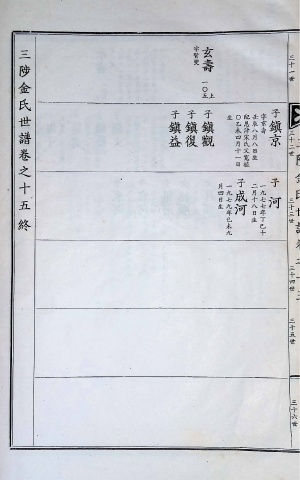 三十一世
三十二世
三十三世
三十四世
三十五世
三十六世
玄壽
字賢叟
一〇五
上
子鎭京
字京壽
壬辰八月八日生
配恩津宋氏父寬植
〇乙未四月十一日
生
子鎭觀
子鎭復
子鎭益
子河
一九七七年丁巳十
二月十八日生
子成河
一九七九年己未九
月四日生
三陟金氏世譜卷之十五終